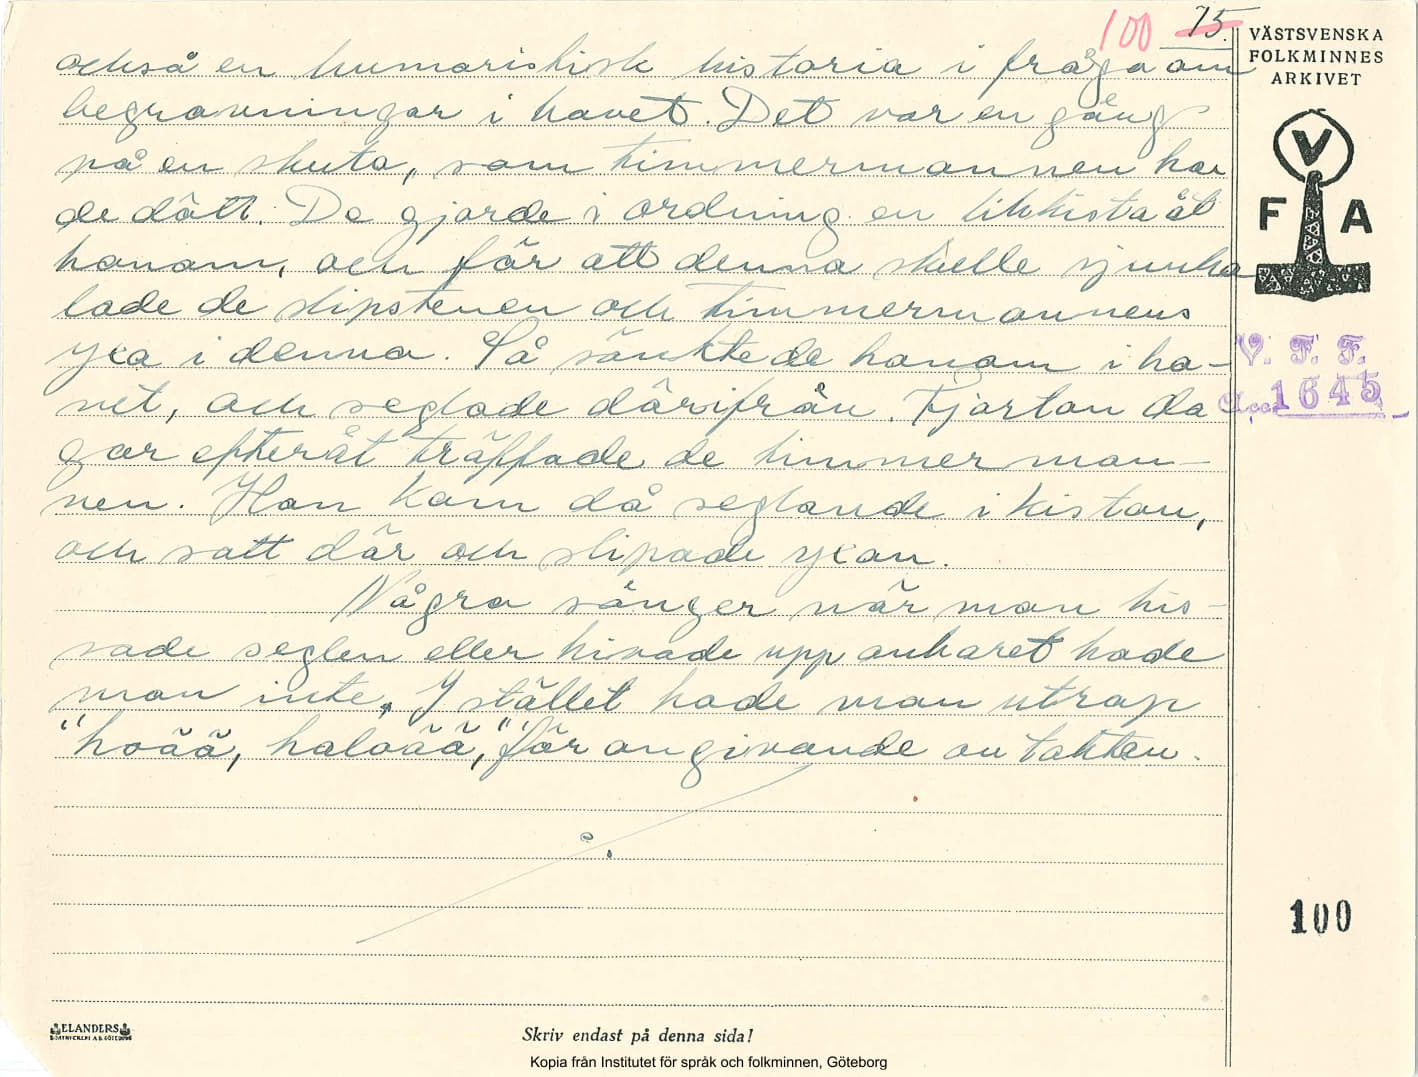 100 75.
också en humoristisk historia i fråga om
begravningar i havet. Det var en gång
på en skuta, som timmermannen ha
de dött. De gjorde i ordning en likkista åt
honom, och för att denna skulle sjunka
lade de slipstenen och timmermannens
yxa i denna. Så sänkte de honom i ha-
vet, och seglade därifrån. Fjorton da
gar efteråt träffade de timmerman-
nen. Han kom då seglande i kistan,
och satt där och slipade yxan.
Några sånger när man his-
sade seglen eller hivade upp ankaret hade
man inte. I stället hade man utrop
"hoåå, haloåå," för angivande av takten.
VÄSTSVENSKA
FOLKMINNES
ARKIVET
V
F A
V. F. F.
1645
100
ELANDERS
Skriv endast på denna sida!
Kopia från Institutet för språk och folkminnen, Göteborg